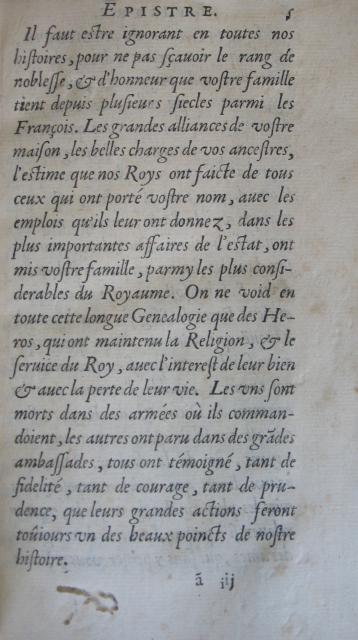 EPISTRE. 5
Il faut estre ignorant en toutes nos
histoires, pour ne pas sçauoir le rang de
noblesse, & d'honneur que vostre famille
tient depuis plusieurs siecles parmi les
François. Les grandes alliances de vostre
maison, les belles charges de vos ancestres,
l'estime que nos Roys ont faicte de tous
ceux qui ont porté vostre nom, auec les
emplois qu'ils leur ont donnez, dans les
plus importantes affaires de l'estat, ont
mis vostre famille, parmy les plus consi-
derables du Royaume. On ne void en
toute cette longue Genealogie que des He-
ros, qui ont maintenu la Religion, & le
seruice du Roy, auec l'interest de leur bien
& auec la perte de leur vie. Les vns sont
morts dans des armées où ils comman-
doient, les autres ont paru dans des grãdes
ambassades, tous ont témoigné, tant de
fidelité, tant de courage, tant de pru-
dence, que leurs grandes actions seront
toûiours vn des beaux poincts de nostre
histoire.
ã iij